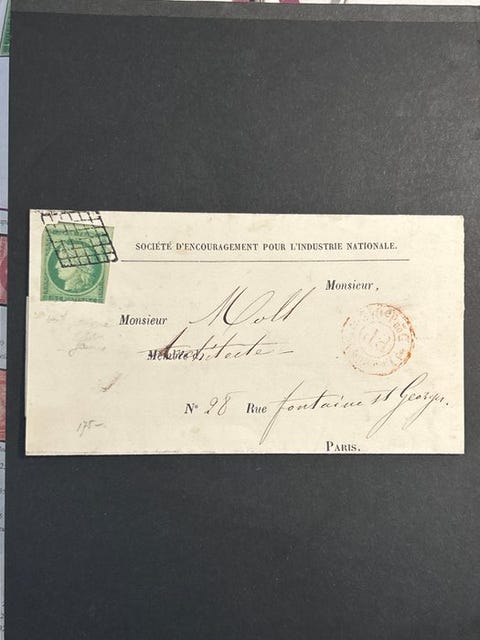 SOCIÉTÉ D'ENCOURAGEMENT POUR L'INDUSTRIE NATIONALE.
Monsieur,
Monsieur Moll
Membre
Architecte
Nº 28 Rue fontaine St Georges.
175-
PARIS.